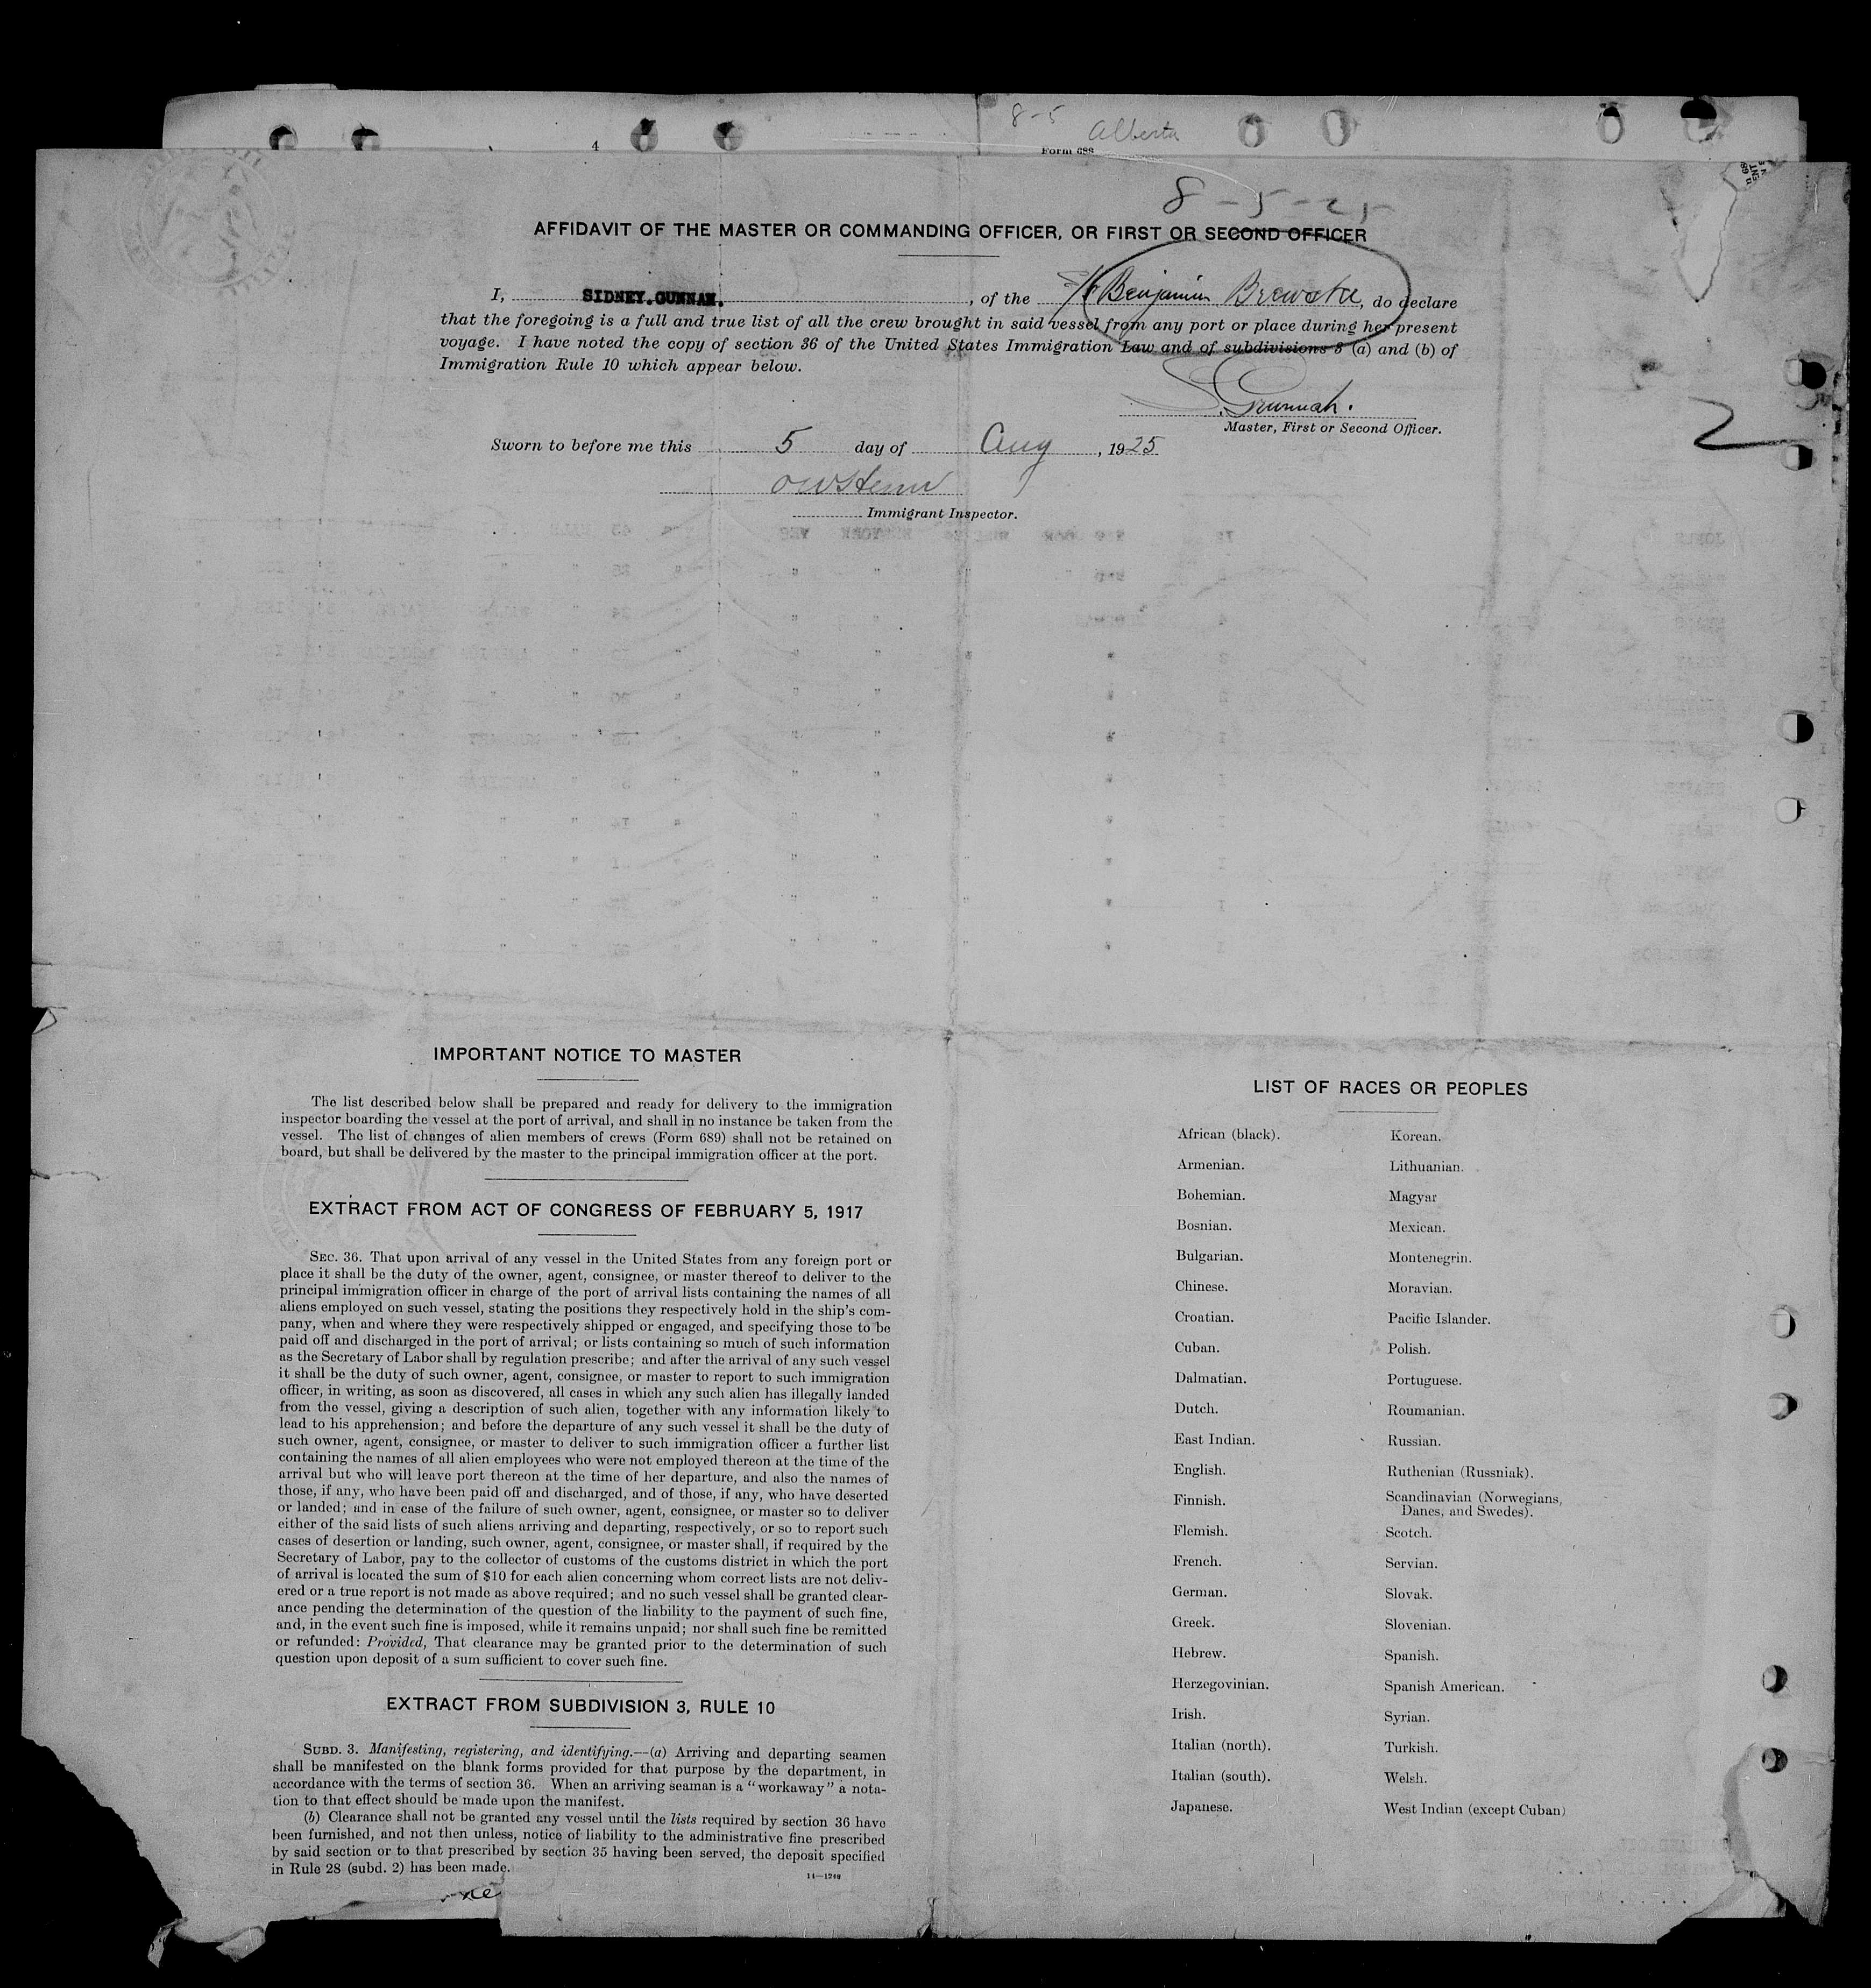 8-5 Alberta
4
Form 688
8-5-25
AFFIDAVIT OF THE MASTER OR COMMANDING OFFICER, OR FIRST OR SECOND OFFICER
I, SIDNEY.GUNNAH., of the S/S Benjamin Brewster, do declare
that the foregoing is a full and true list of all the crew brought in said vessel from any port or place during her present
voyage. I have noted the copy of section 36 of the United States Immigration Law and of subdivisions 3 (a) and (b) of
Immigration Rule 10 which appear below.
S. Gunnah.
Master, First or Second Officer.
2
Sworn to before me this 5 day of Aug, 1925
Immigrant Inspector.
IMPORTANT NOTICE TO MASTER
The list described below shall be prepared and ready for delivery to the immigration
inspector boarding the vessel at the port of arrival, and shall in no instance be taken from the
vessel. The list of changes of alien members of crews (Form 689) shall not be retained on
board, but shall be delivered by the master to the principal immigration officer at the port.
EXTRACT FROM ACT OF CONGRESS OF FEBRUARY 5, 1917
SEC. 36. That upon arrival of any vessel in the United States from any foreign port or
place it shall be the duty of the owner, agent, consignee, or master thereof to deliver to the
principal immigration officer in charge of the port of arrival lists containing the names of all
aliens employed on such vessel, stating the positions they respectively hold in the ship's com-
pany, when and where they were respectively shipped or engaged, and specifying those to be
paid off and discharged in the port of arrival; or lists containing so much of such information
as the Secretary of Labor shall by regulation prescribe; and after the arrival of any such vessel
it shall be the duty of such owner, agent, consignee, or master to report to such immigration
officer, in writing, as soon as discovered, all cases in which any such alien has illegally landed
from the vessel, giving a description of such alien, together with any information likely to
lead to his apprehension; and before the departure of any such vessel it shall be the duty of
such owner, agent, consignee, or master to deliver to such immigration officer a further list
containing the names of all alien employees who were not employed thereon at the time of the
arrival but who will leave port thereon at the time of her departure, and also the names of
those, if any, who have been paid off and discharged, and of those, if any, who have deserted
or landed; and in case of the failure of such owner, agent, consignee, or master so to deliver
either of the said lists of such aliens arriving and departing, respectively, or so to report such
cases of desertion or landing, such owner, agent, consignee, or master shall, if required by the
Secretary of Labor, pay to the collector of customs of the customs district in which the port
of arrival is located the sum of $10 for each alien concerning whom correct lists are not deliv-
ered or a true report is not made as above required; and no such vessel shall be granted clear-
ance pending the determination of the question of the liability to the payment of such fine,
and, in the event such fine is imposed, while it remains unpaid; nor shall such fine be remitted
or refunded: Provided, That clearance may be granted prior to the determination of such
question upon deposit of a sum sufficient to cover such fine.
EXTRACT FROM SUBDIVISION 3, RULE 10
SUBD. 3. Manifesting, registering, and identifying.—(a) Arriving and departing seamen
shall be manifested on the blank forms provided for that purpose by the department, in
accordance with the terms of section 36. When an arriving seaman is a "workaway" a nota-
tion to that effect should be made upon the manifest.
(b) Clearance shall not be granted any vessel until the lists required by section 36 have
been furnished, and not then unless, notice of liability to the administrative fine prescribed
by said section or to that prescribed by section 35 having been served, the deposit specified
in Rule 28 (subd. 2) has been made.
14—1240
LIST OF RACES OR PEOPLES
African (black).
Armenian.
Bohemian.
Bosnian.
Bulgarian.
Chinese.
Croatian.
Cuban.
Dalmatian.
Dutch.
East Indian.
English.
Finnish.
Flemish.
French.
German.
Greek.
Hebrew.
Herzegovinian.
Irish.
Italian (north).
Italian (south).
Japanese.
Korean.
Lithuanian.
Magyar
Mexican.
Montenegrin.
Moravian.
Pacific Islander.
Polish.
Portuguese.
Roumanian.
Russian.
Ruthenian (Russniak).
Scandinavian (Norwegians,
Danes, and Swedes).
Scotch.
Servian.
Slovak.
Slovenian.
Spanish.
Spanish American.
Syrian.
Turkish.
Welsh.
West Indian (except Cuban)